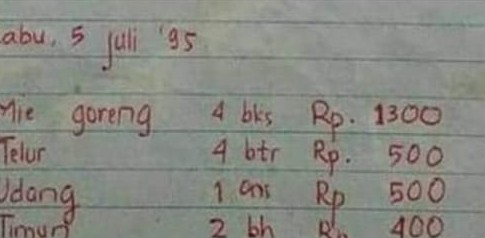 abu, 5 juli '95
Mie goreng 4 bks Rp. 1300
Telur 4 btr Rp. 500
Udang 1 ons Rp 500
Timun 2 bh Rp. 400